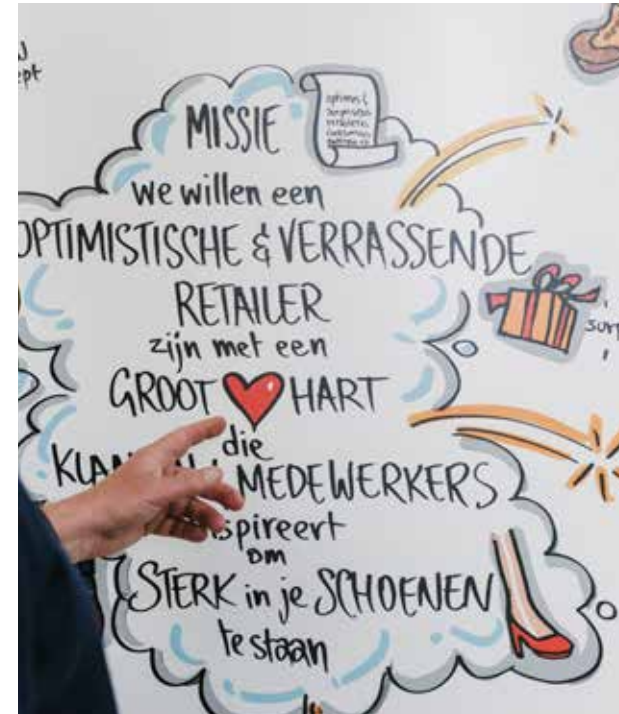 MISSIE
We willen een
OPTIMISTISCHE & VERRASSENDE
RETAILER
zijn met een
GROOT HART
die
MEDEWERKERS
om
STERK in je SCHOENEN
te staan